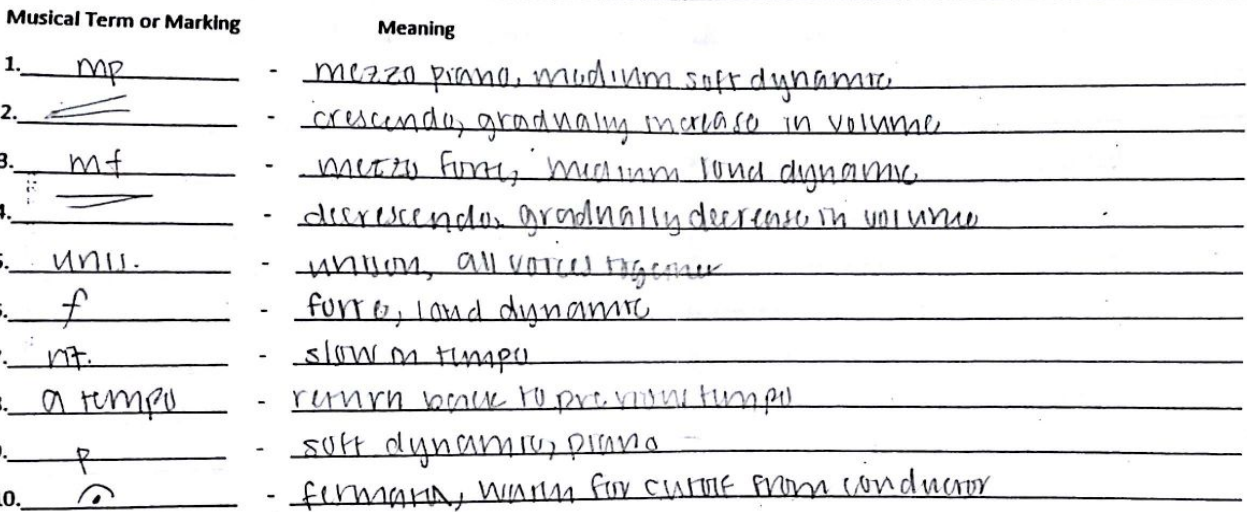 Musical Term or Marking Meaning
1. mp - mezzo piano, medium soft dynamic
2. - crescendo, gradually increase in volume
3. mf - mezzo forte, medium loud dynamic
4. - decrescendo, gradually decrease in volume
5. unis. - unison, all voices together
6. f - forte, loud dynamic
7. rit. - slow in tempo
8. a tempo - return back to previous tempo
9. p - soft dynamic, piano
10. 𝄐 - fermata, watch for cutoff from conductor